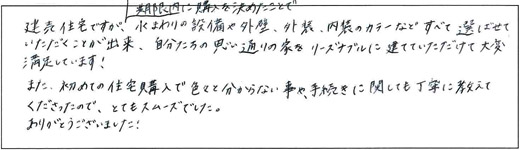 期限内に購入を決めたことで
建売住宅ですが、水まわりの設備や外壁、外装、内装のカラーなどすべて選ばせて
いただくことが出来、自分たちの思い通りの家をリーズナブルに建てていただけて大変
満足しています!
また、初めての住宅購入で色々と分からない事や、手続きに関しても丁寧に教えて
くださったので、とてもスムーズでした。
ありがとうございました!